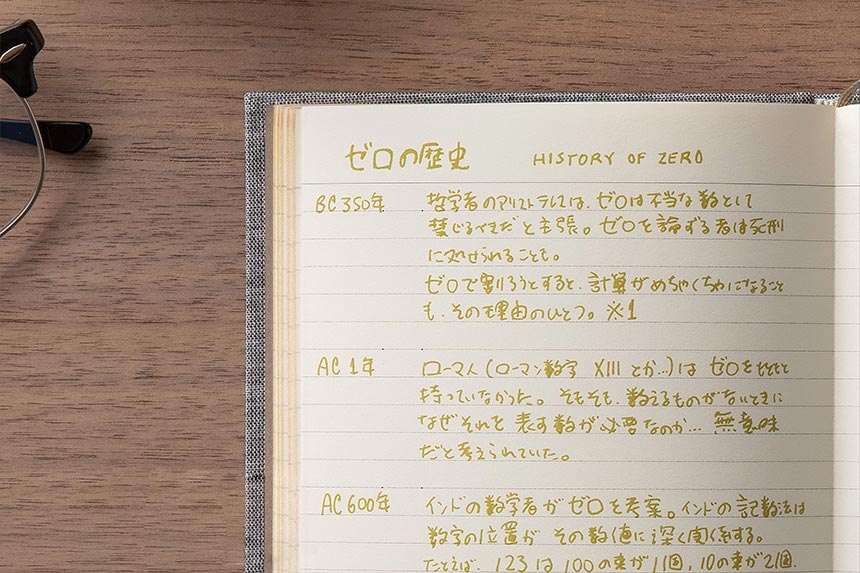 ゼロの歴史 HISTORY OF ZERO
BC350年 哲学者のアリストテレスは、ゼロは不当な数として
禁じるべきだと主張。ゼロを論ずる者は死刑
に処せられることも。
ゼロで割ろうとすると、計算がめちゃくちゃになること
も、その理由のひとつ。※1
AC1年 ローマ人(ローマン数字 XIII とか…)は ゼロを
持っていなかった。そもそも、数えるものがないときに
なぜそれを 表す数が必要なのか… 無意味
だと考えられていた。
AC600年 インドの数学者がゼロを考案。インドの記数法は
数字の位置が その数値に深く関係する。
たとえば、123は100の束が1個,10の束が2個.